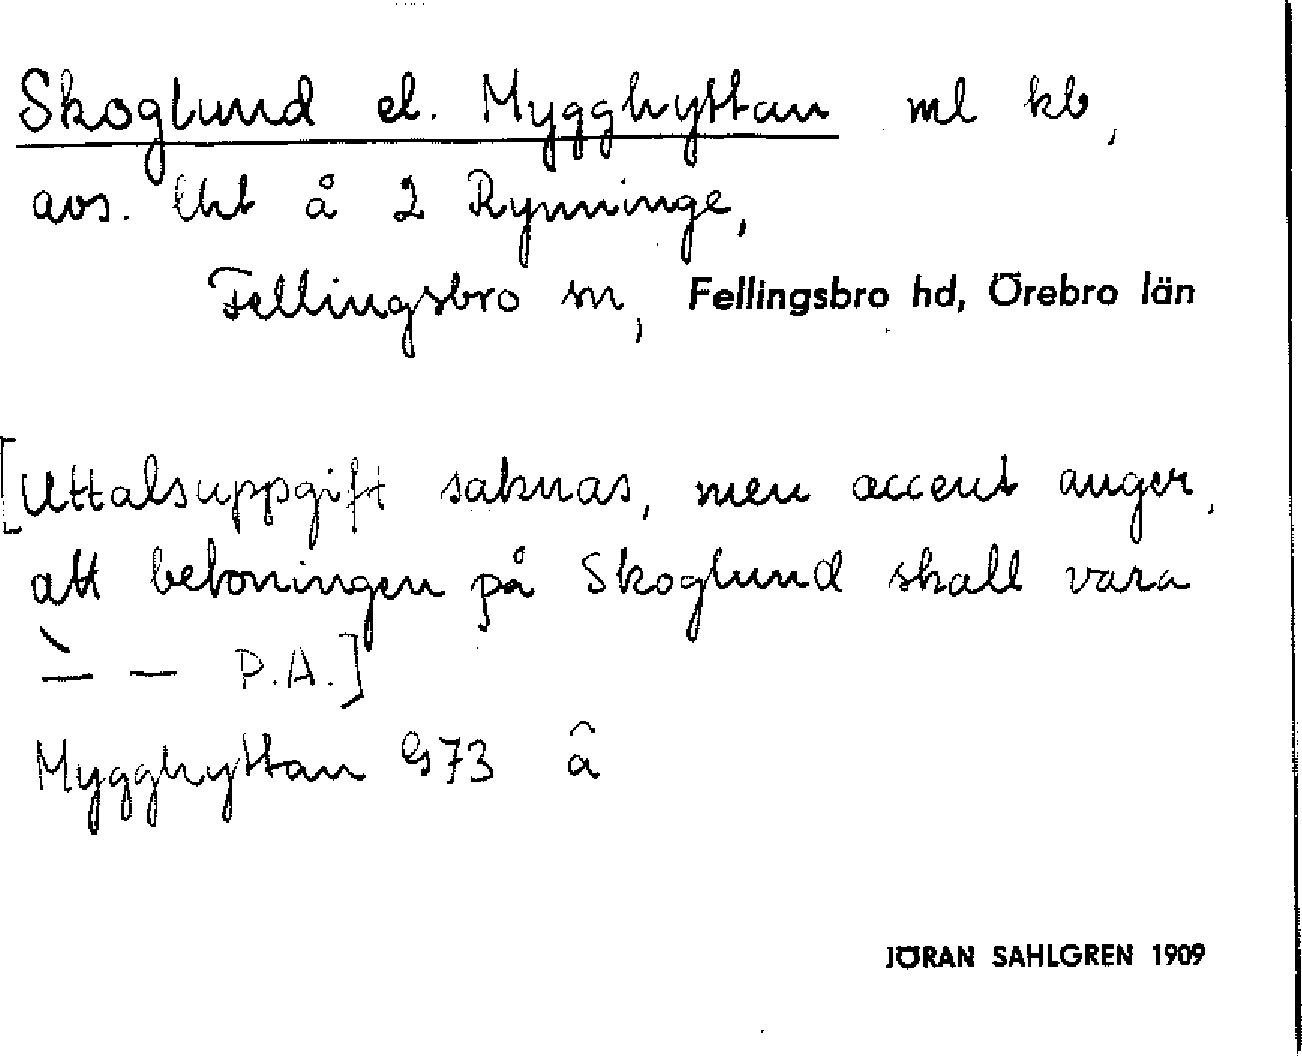 Skoglund el. Mygghyttan ml kb,
avs. lht å 2 Rynninge,
Fellingsbro sn, Fellingsbro hd, Örebro län
[Uttalsuppgift saknas, men accent anger,
att betoningen på Skoglund skall vara
̀— — P.A.]
Mygghyttan G73 â
JÖRAN SAHLGREN 1909